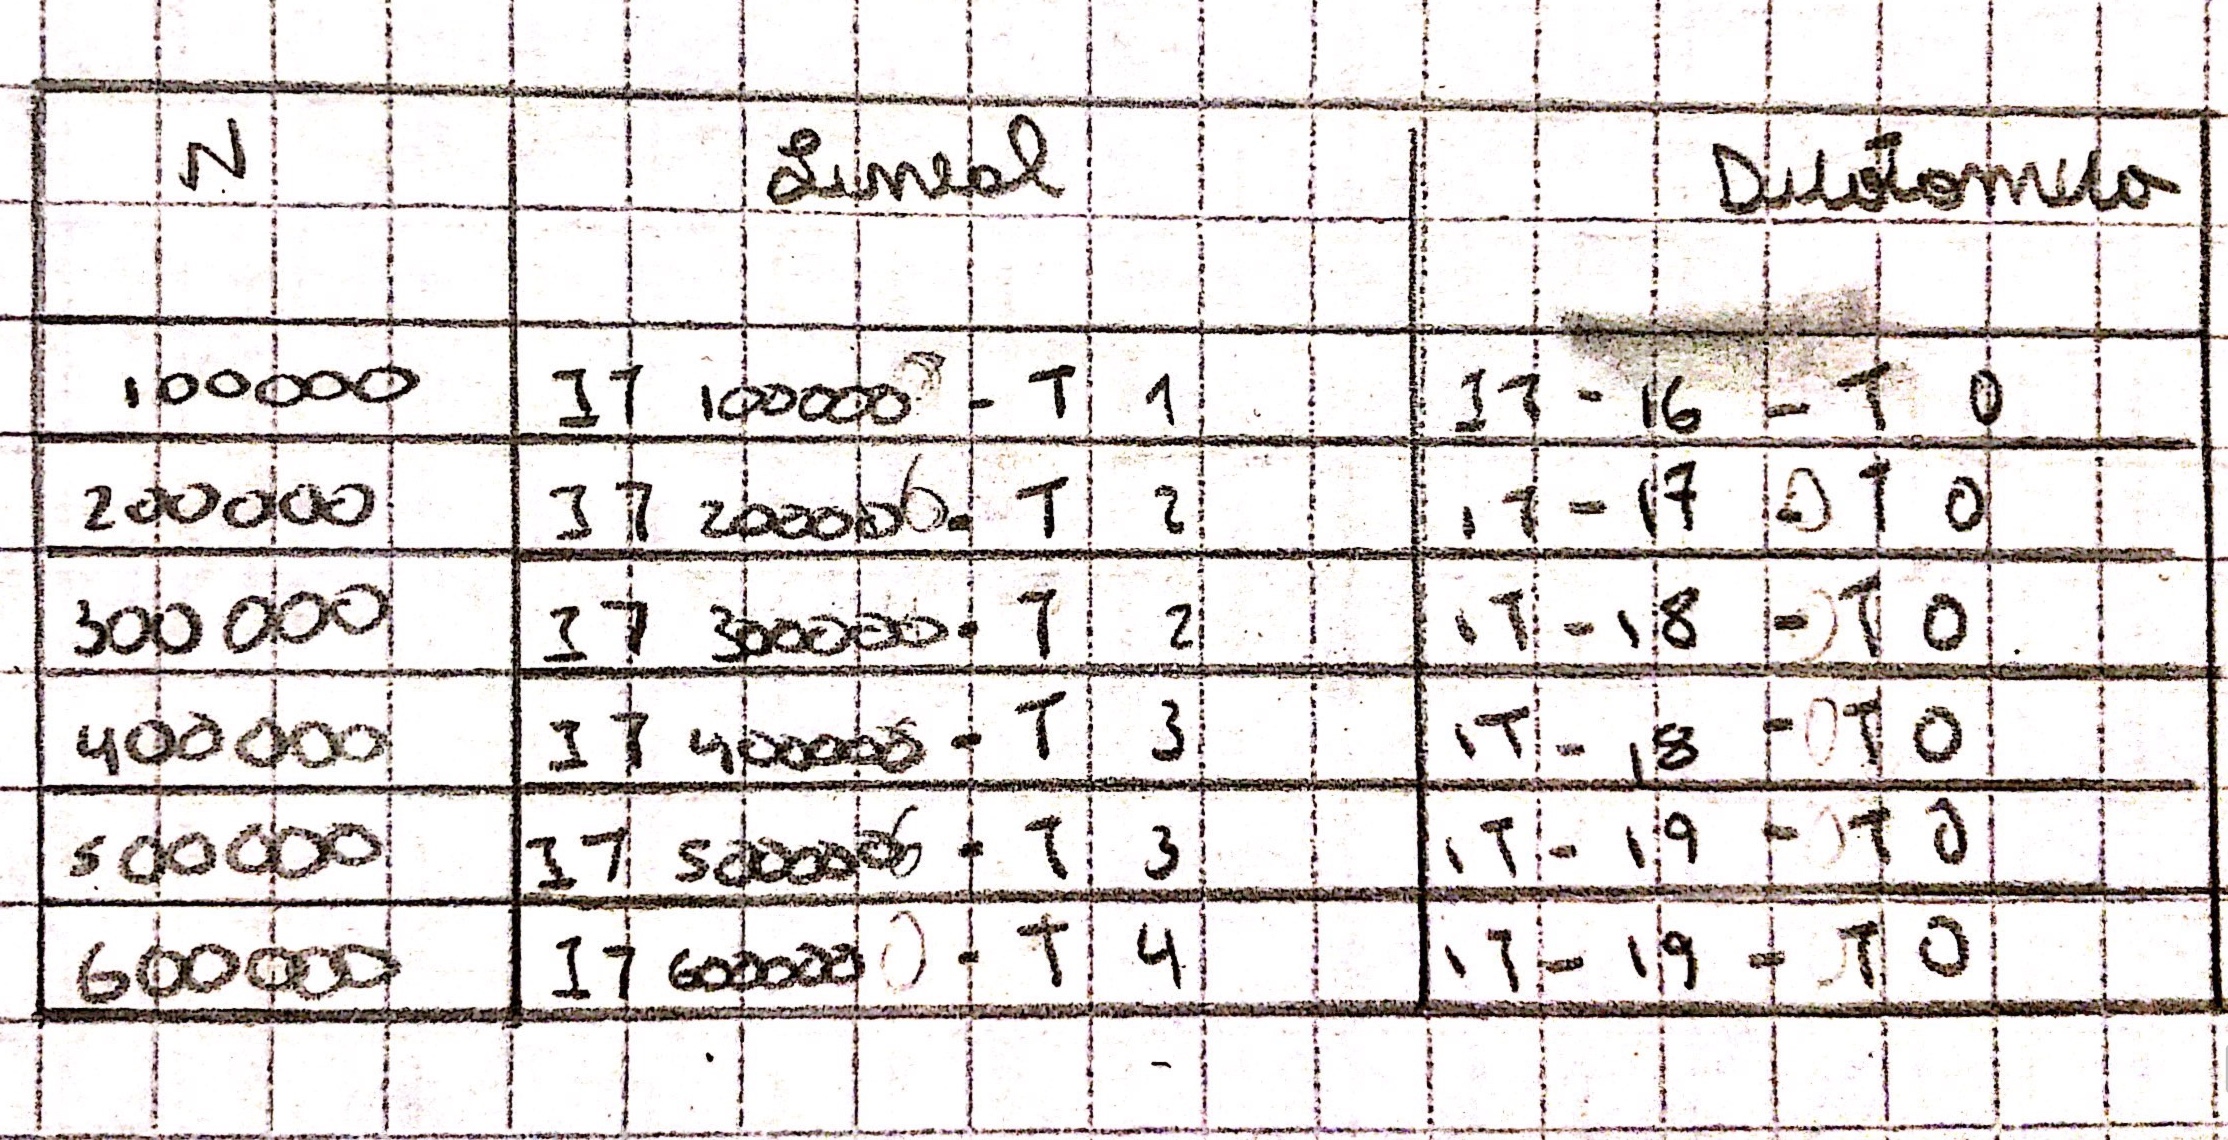 N Lineal Dicotomica
100000 IT 100000 - T 1 IT - 16 - T 0
200000 IT 200000 - T 2 IT - 17 - T 0
300000 IT 300000 - T 2 IT - 18 - T 0
400000 IT 400000 - T 3 IT - 18 - T 0
500000 IT 500000 - T 3 IT - 19 - T 0
600000 IT 600000 - T 4 IT - 19 - T 0